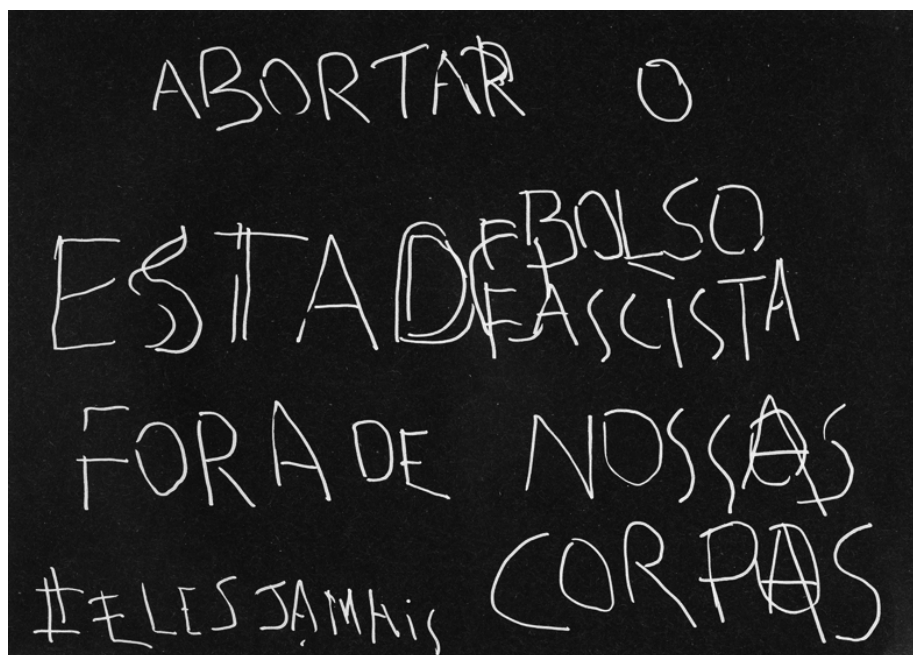 ABORTAR O
ESTADO E BOLSO
FASCISTA
FORA DE NOSSAS
CORPAS
#ELES JAMAiS